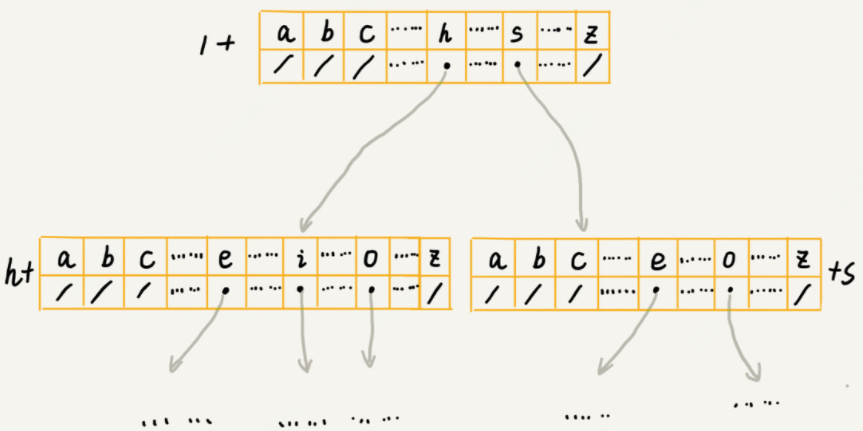 /+ a b c ...... h ...... s ...... z
/ / / ...... • ...... • ...... /
h+ a b c ...... e ...... i ...... o ...... z
/ / / ...... • ...... • ...... • ...... /
a b c ...... e ...... o ...... z +s
/ / / ...... • ...... • ...... /